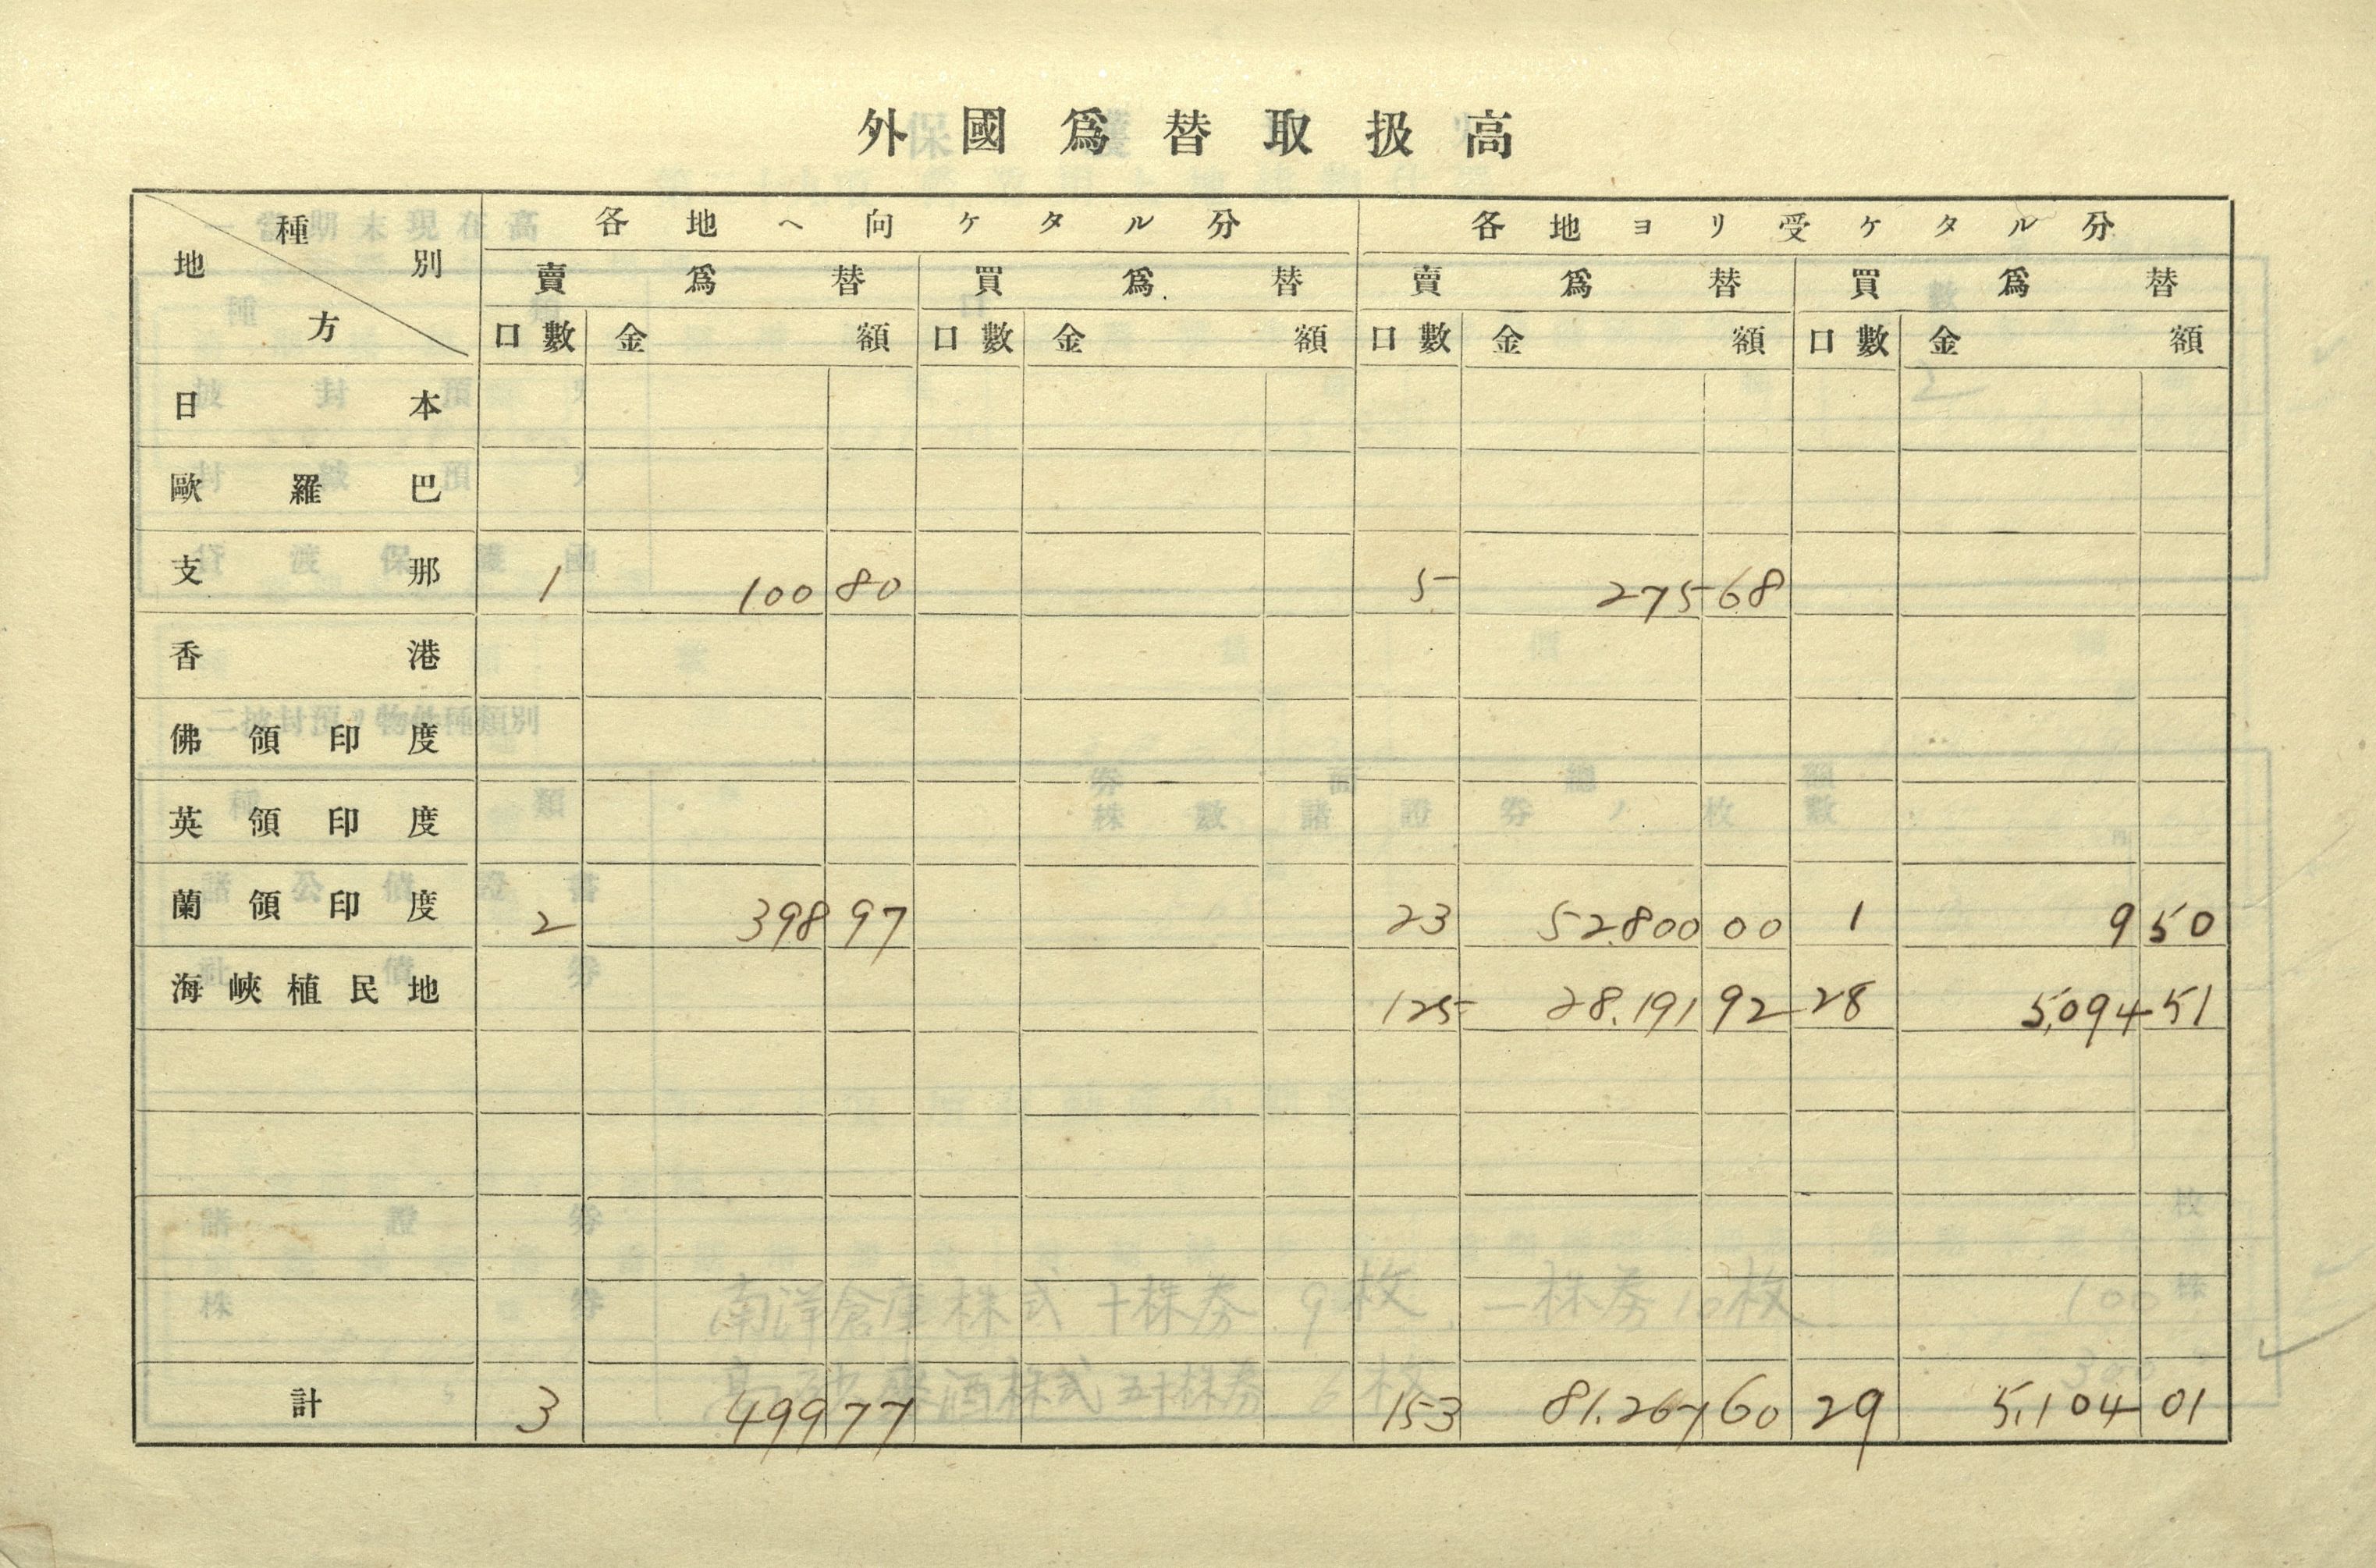 外國爲替取扱高
種別 地方 各地ヘ向ケタル分 各地ヨリ受ケタル分
賣爲替 買爲替 賣爲替 買爲替
口數 金額 口數 金額 口數 金額 口數 金額
日本
歐羅巴
支那 1 100 80 5 275 68
香港
佛領印度
英領印度
蘭領印度 2 398 97 23 52.800 00 1 9 50
海峽植民地 125 28.191 92 28 5,094 51
計 3 499 77 153 81.267 60 29 5,104 01